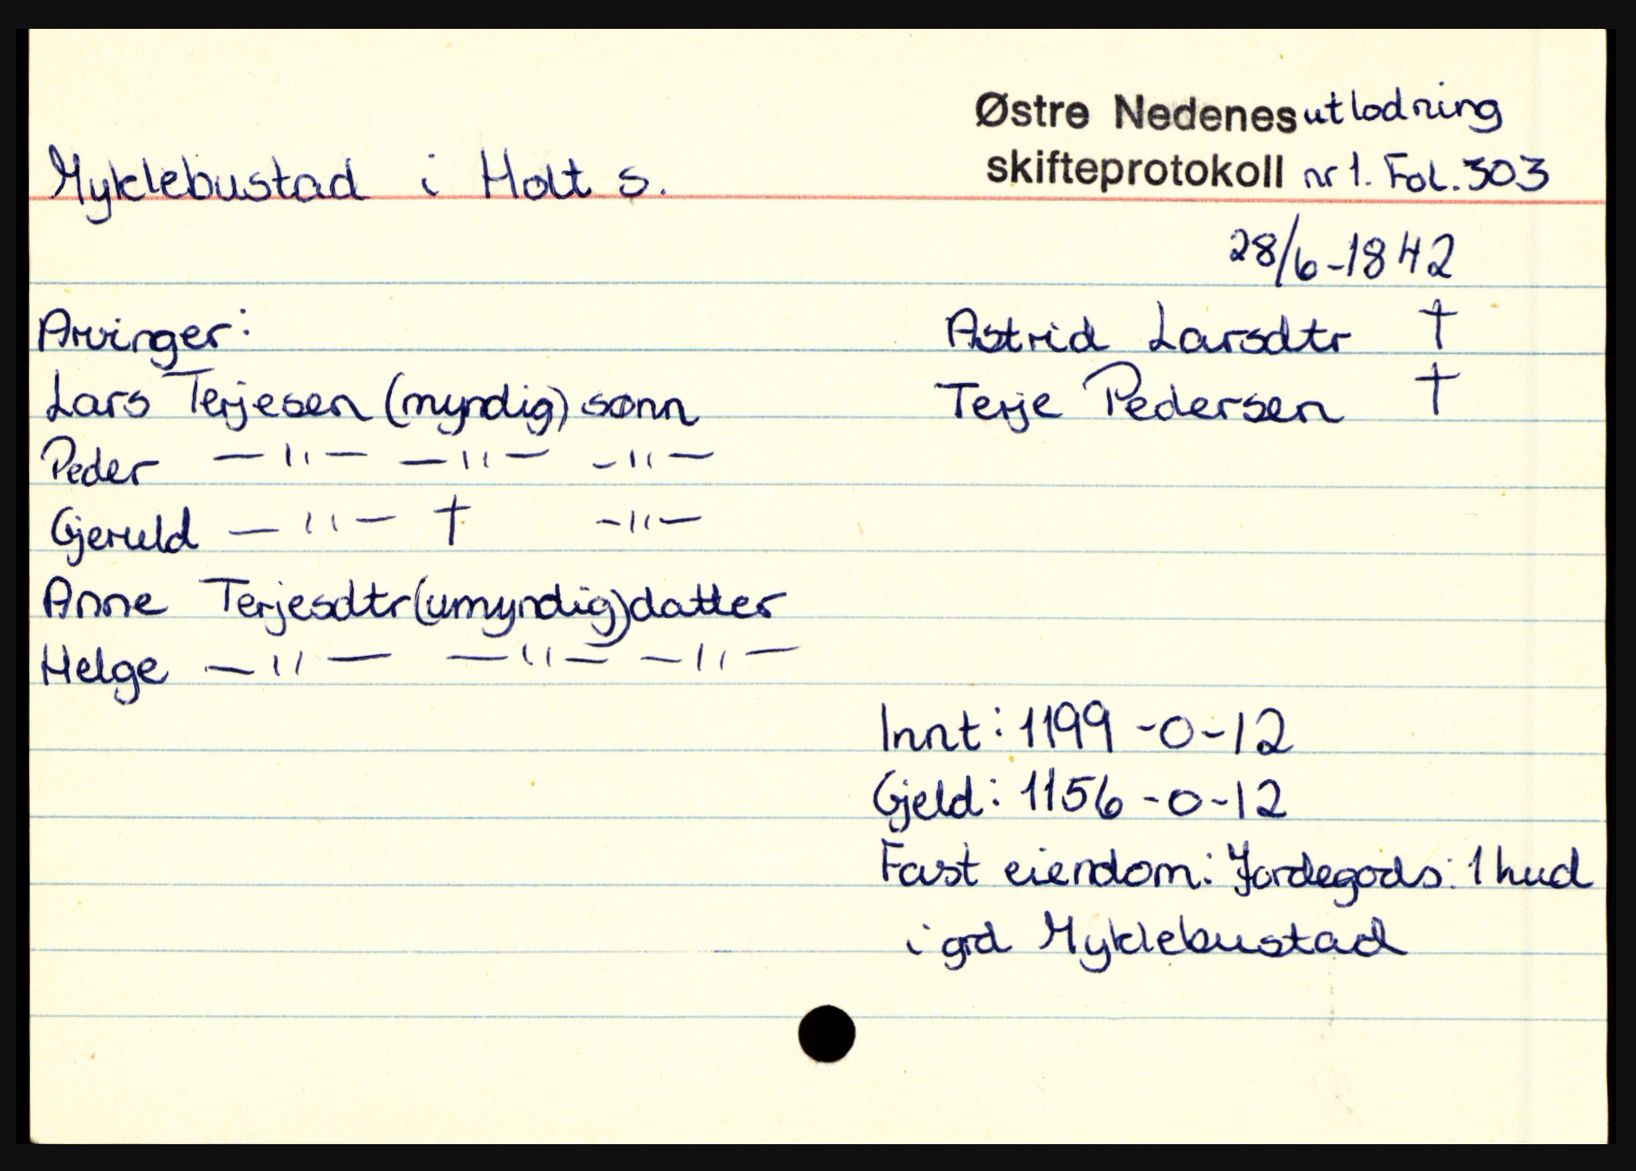 Østre Nedenes utlodning
Myklebustad i Holt s.
skifteprotokoll nr 1. Fol. 303
28/6-1842
Arvinger:
Astrid Larsdtr †
Lars Terjesen (myndig) sønn
Terje Pedersen †
Peder —"— —"— —"—
Gjeruld —"— † —"—
Anne Terjesdtr (umyndig) datter
Helge —"— —"— —"—
Innt: 1199-0-12
Gjeld: 1156-0-12
Fast eiendom: Jordegods: 1 hud
i grd Myklebustad